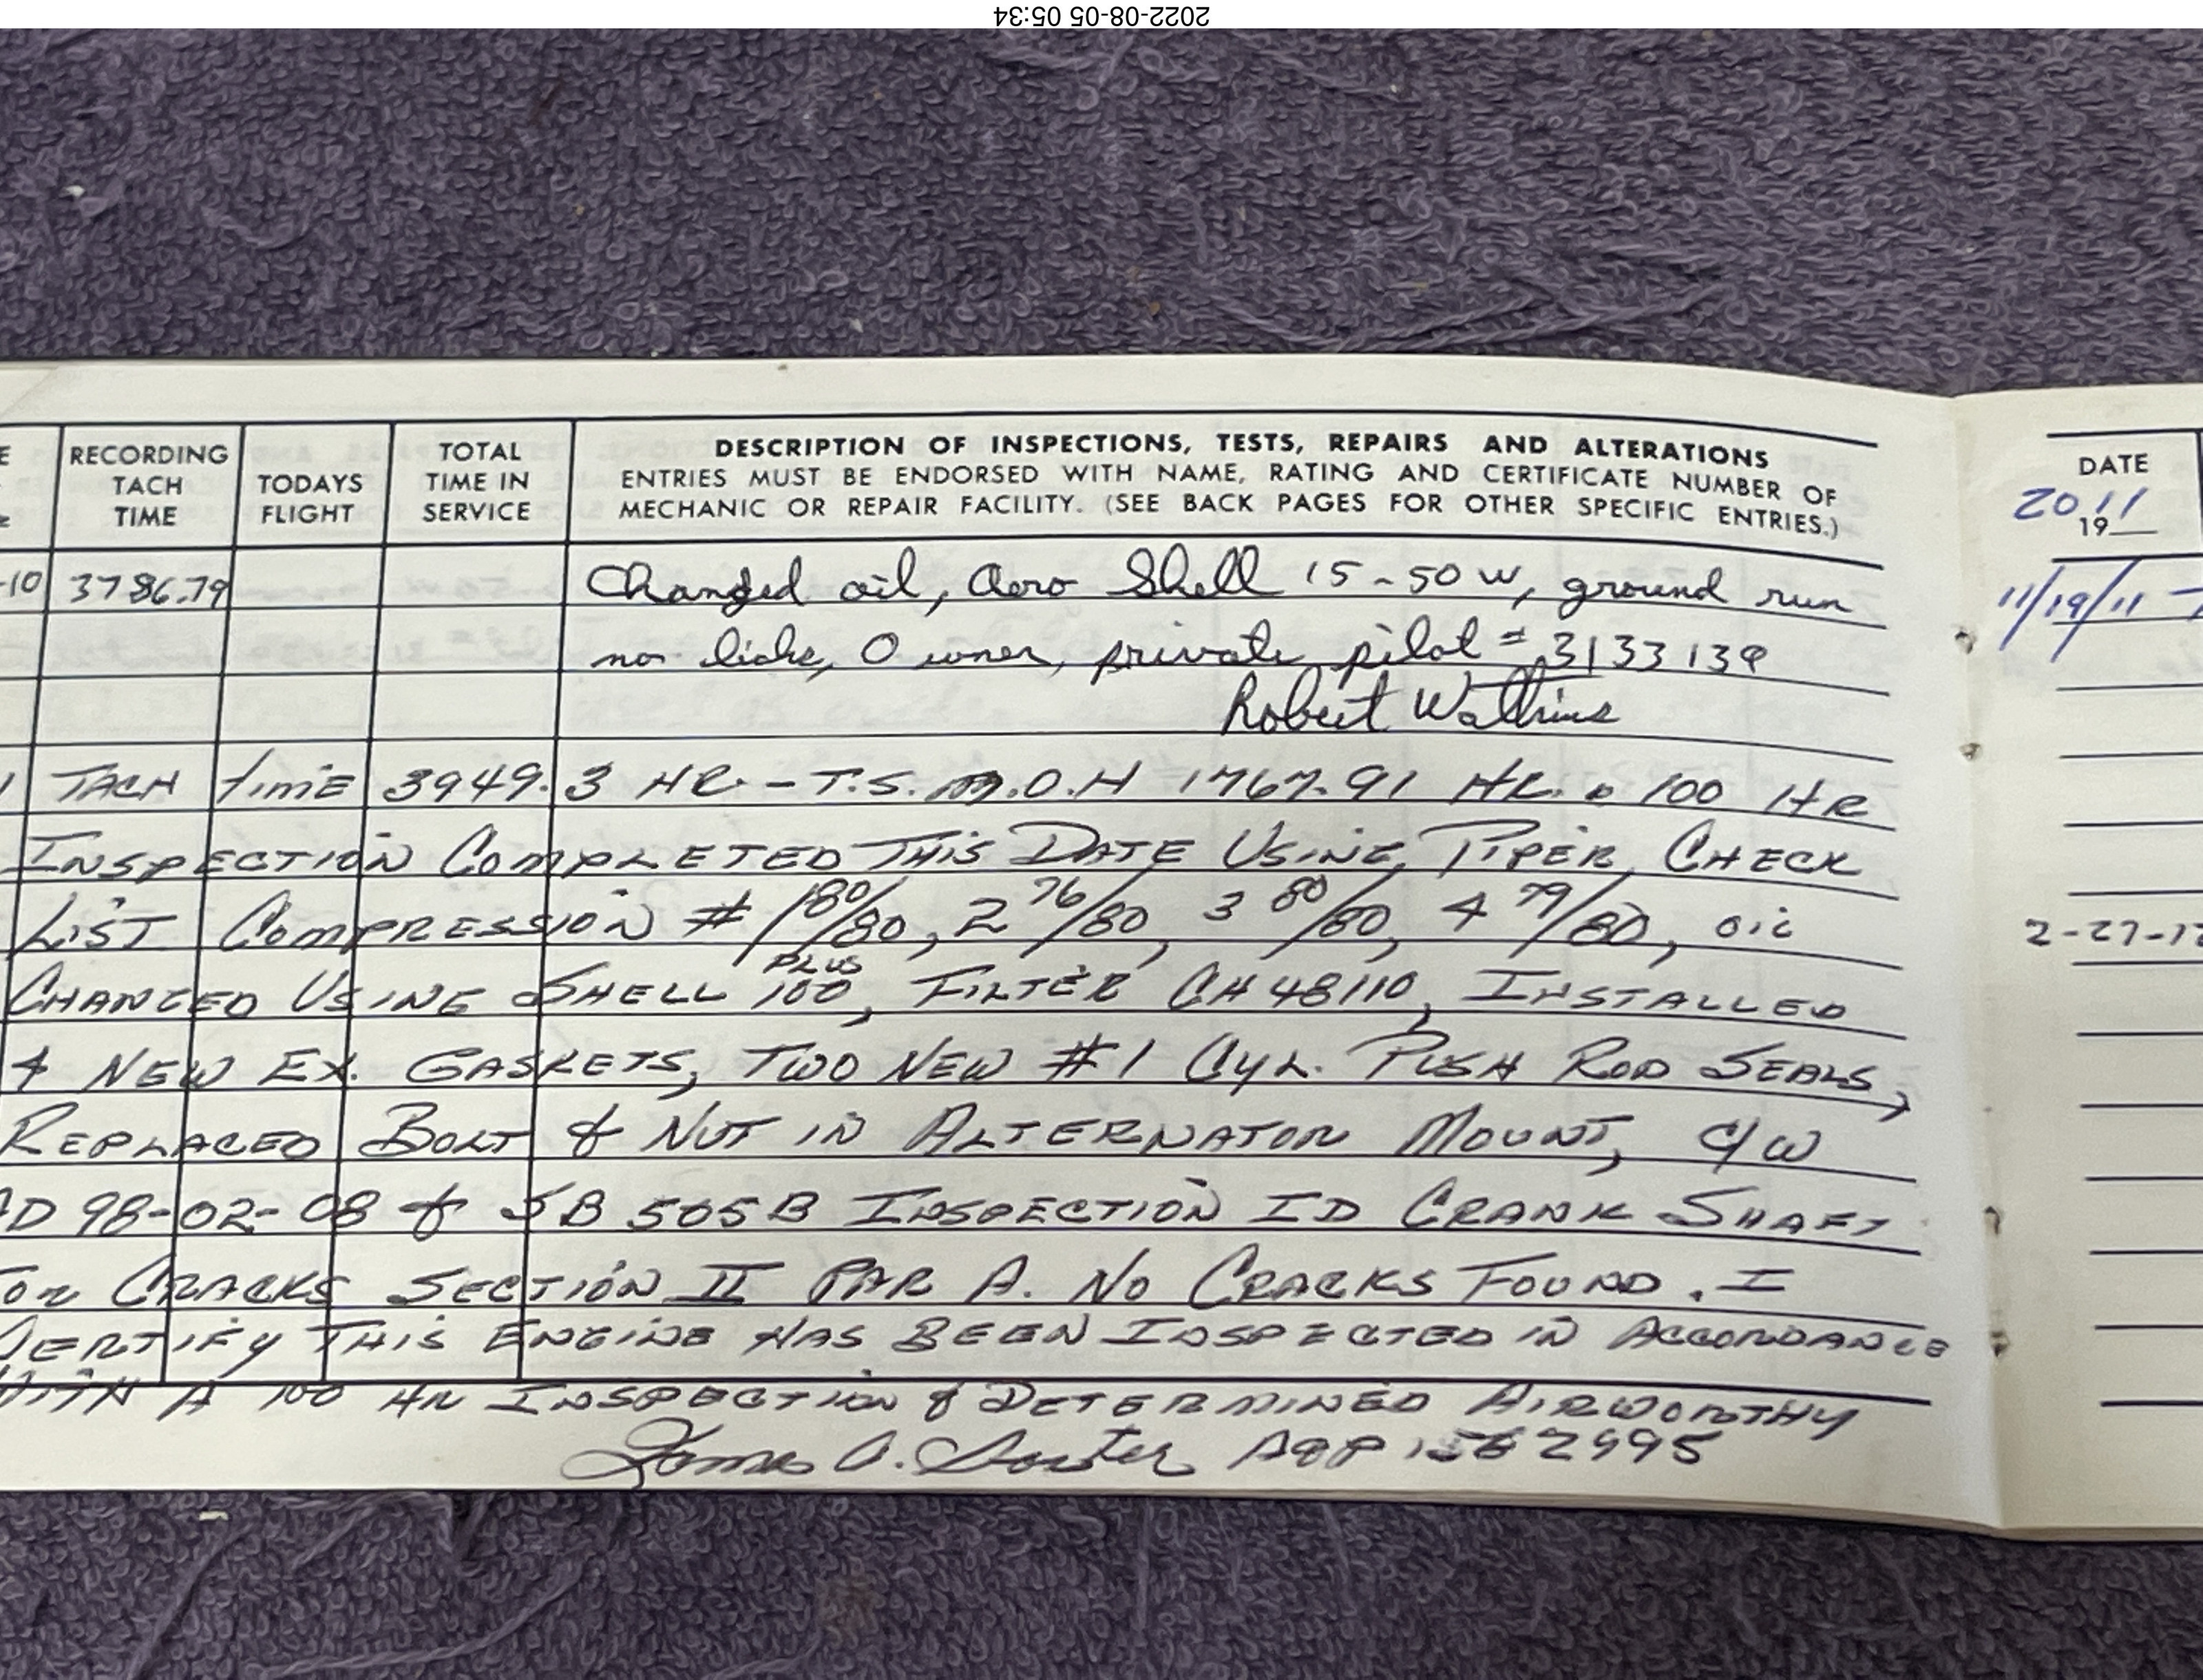 2022-08-05 05:34
E
RECORDING TACH TIME
TODAYS FLIGHT
TOTAL TIME IN SERVICE
DESCRIPTION OF INSPECTIONS, TESTS, REPAIRS AND ALTERATIONS
ENTRIES MUST BE ENDORSED WITH NAME, RATING AND CERTIFICATE NUMBER OF
MECHANIC OR REPAIR FACILITY. (SEE BACK PAGES FOR OTHER SPECIFIC ENTRIES.)
-10 3786.79 Changed oil, Aero Shell 15-50W, ground run
no licks, Owner, private pilot # 3133139
Robert Watkins
1 TACH TimE 3949.3 HR. - T.S.M.O.H 1767.91 HR. 100 HR
INSPECTION COMPLETED THIS DATE USING PIPER CHECK
LIST COMPRESSION # 1 80/80, 2 76/80, 3 80/80, 4 79/80, oil
CHANGED USING SHELL 100 PLUS, FILTER CH48110, INSTALLED
4 NEW EX. GASKETS, TWO NEW #1 CYL. PUSH ROD SEALS,
REPLACED BOLT & NUT IN ALTERNATOR MOUNT, C/W
AD 98-02-08 & SB 505B INSPECTION ID CRANK SHAFT
FOR CRACKS SECTION II PAR A. NO CRACKS FOUND. I
CERTIFY THIS ENGINE HAS BEEN INSPECTED IN ACCORDANCE
WITH A 100 HR INSPECTION & DETERMINED AIRWORTHY
James A. A&P
DATE
2011
19
11/19/11
2-27-12